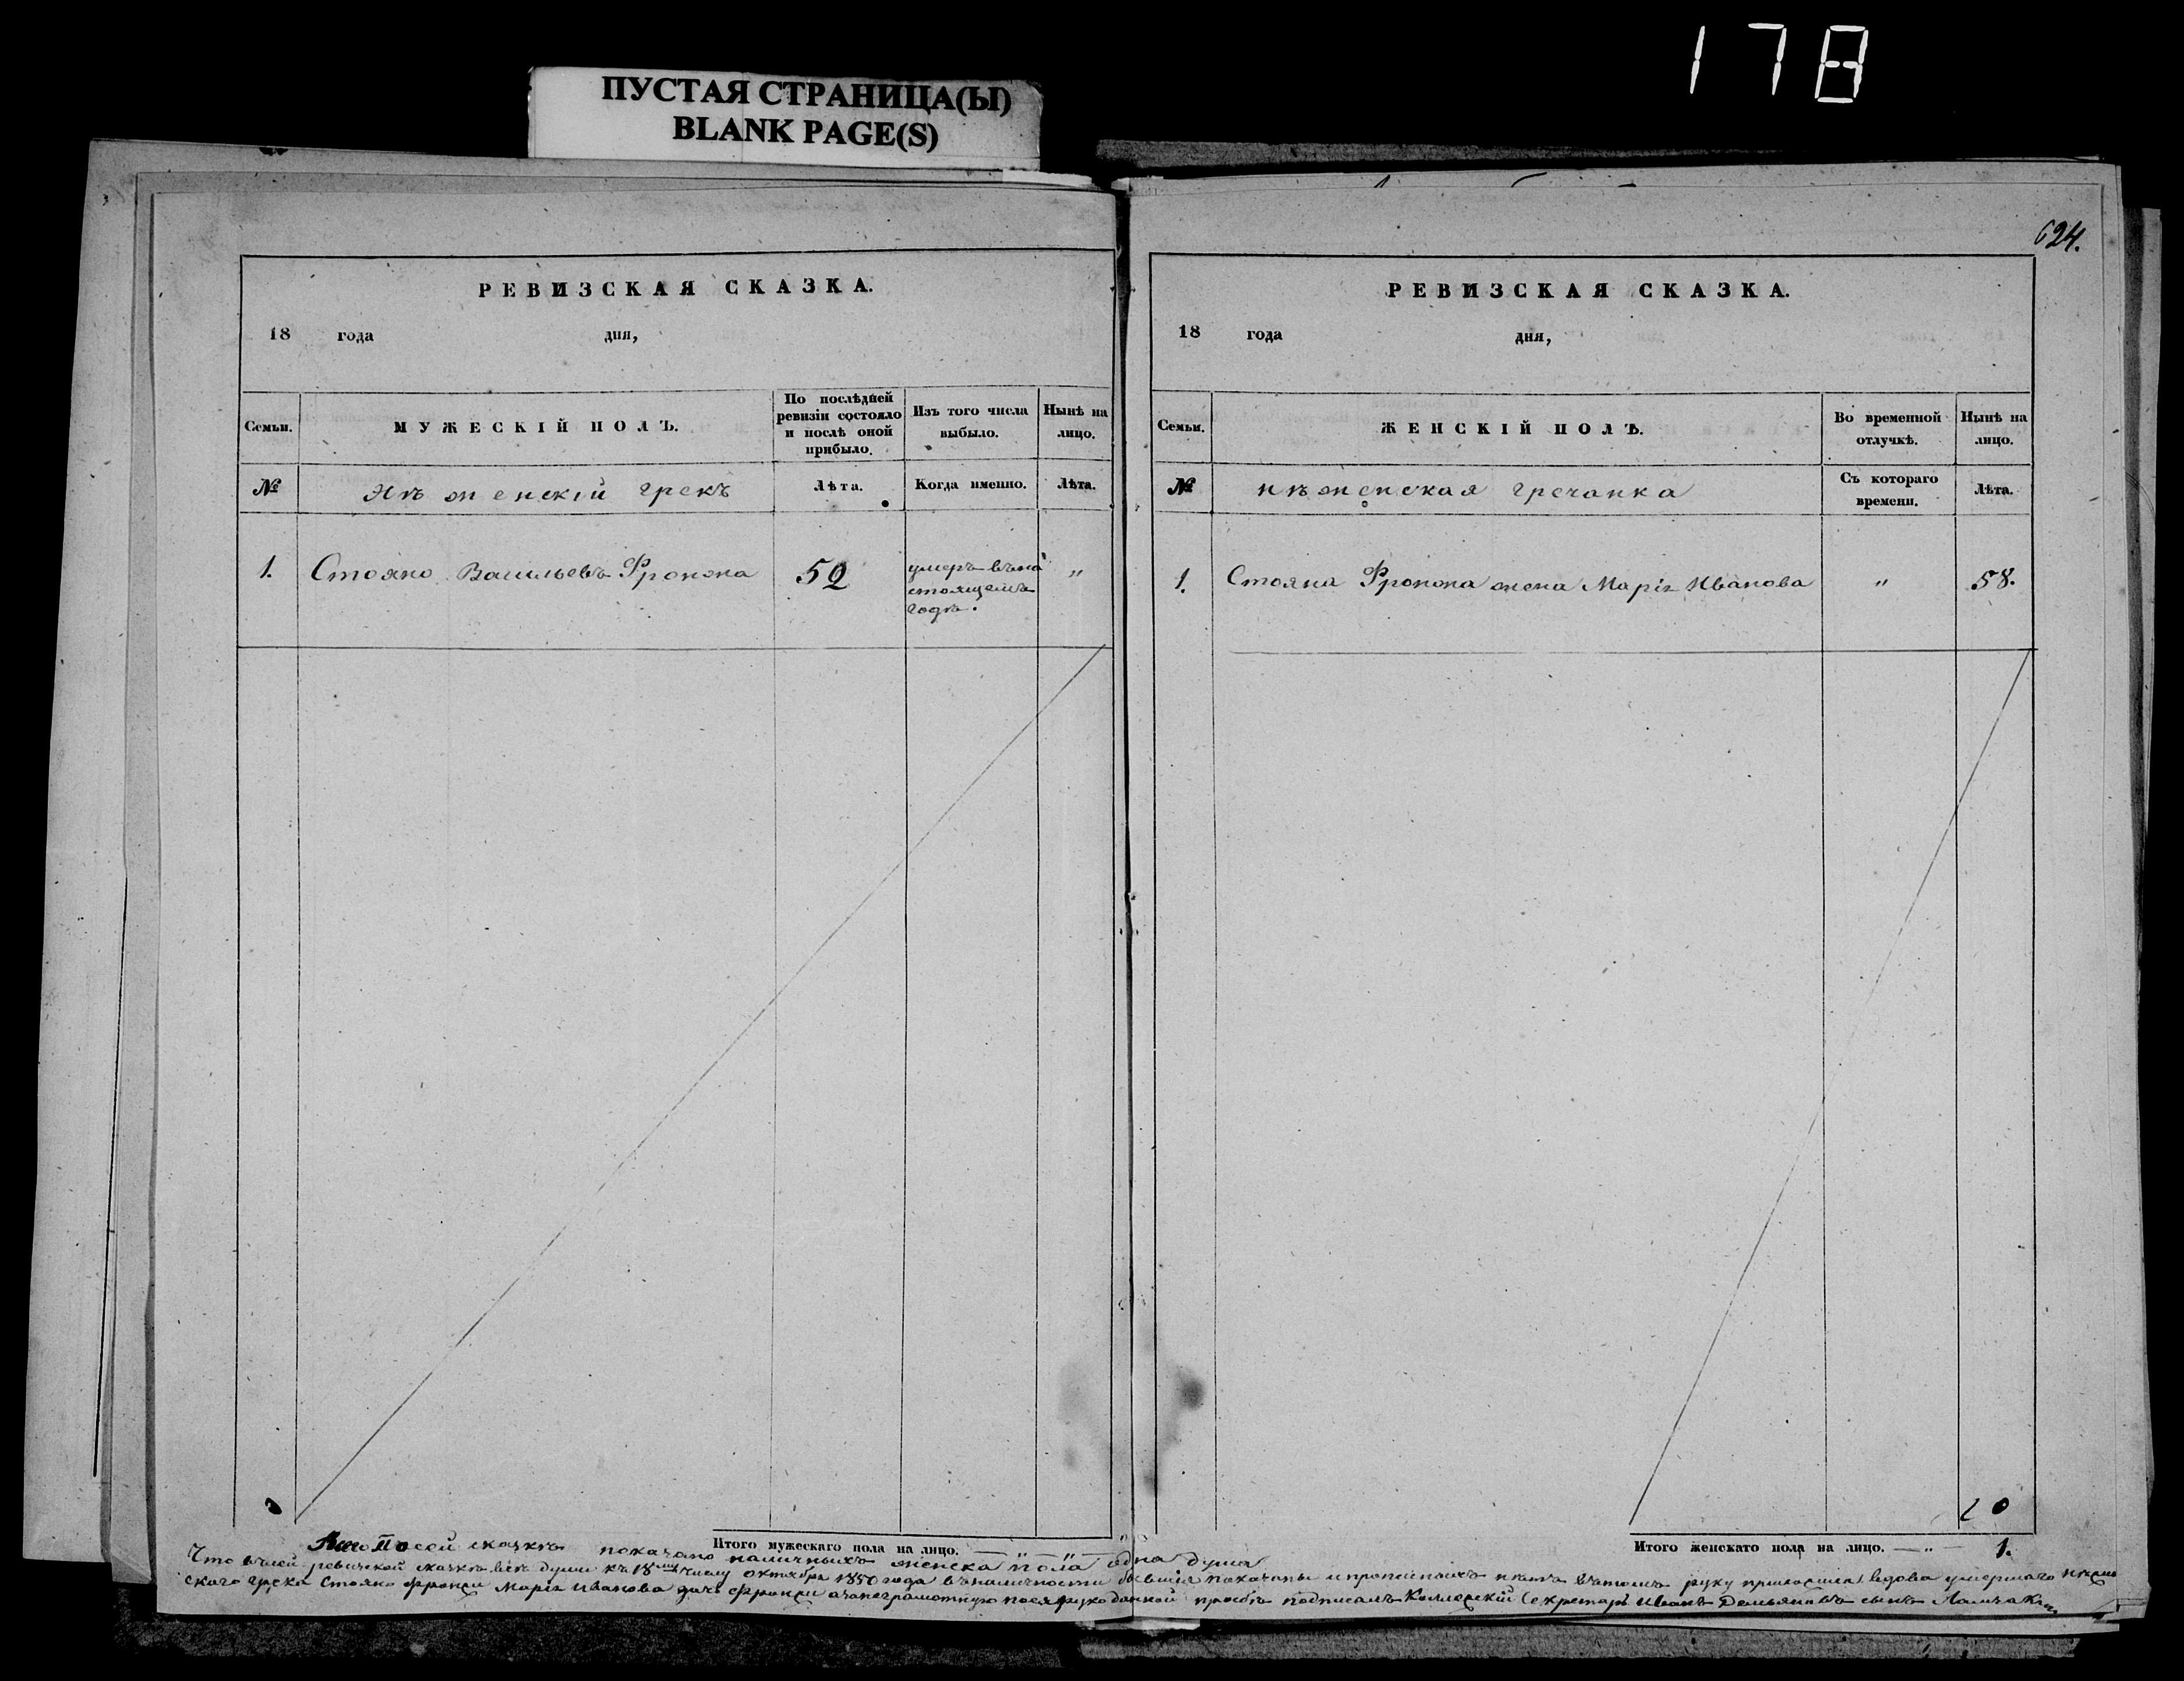 178
ПУСТАЯ СТРАНИЦА(Ы)
BLANK PAGE(S)
РЕВИЗСКАЯ СКАЗКА.
18 года дня,
Семьи.
МУЖЕСКІЙ ПОЛЪ.
По послѣдней ревизіи состояло и послѣ оной прибыло.
Изъ того числа выбыло.
Нынѣ на лицо.
№
Нѣженскій грекъ
Лѣта.
Когда именно.
Лѣта.
1.
Стояно Васильевъ Фронона
52
умеръ въ на
стоящемъ
годѣ.
"
Итого мужескаго пола на лицо.
624.
РЕВИЗСКАЯ СКАЗКА.
18 года дня,
Семьи.
ЖЕНСКІЙ ПОЛЪ.
Во временной отлучкѣ.
Нынѣ на лицо.
№
нѣженская гречанка
Съ котораго времени.
Лѣта.
1.
Стояна Фронона жена Марія Иванова
"
58.
Итого женскаго пола на лицо. — " — 1.
По сей сказкѣ показано наличныхъ женска пола одна душа
Что въ сей ревизской сказкѣ всѣ души къ 18му числу октября 1850 года въ наличности бывшія показаны и прописныхъ нѣтъ въ томъ руку приложила вдова умершаго нѣжен
скаго грека Стояно Марія Иванова подписалъ Коллежскій Секретарь Иванъ Демьяновъ сынъ